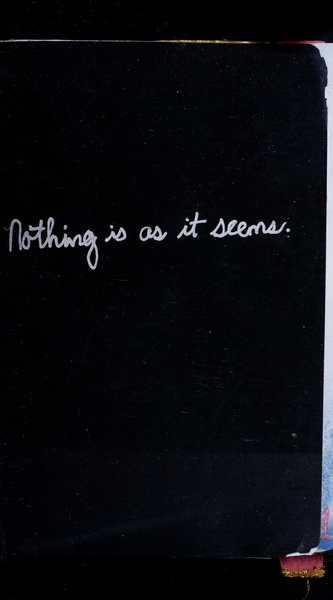 Nothing is as it seems.